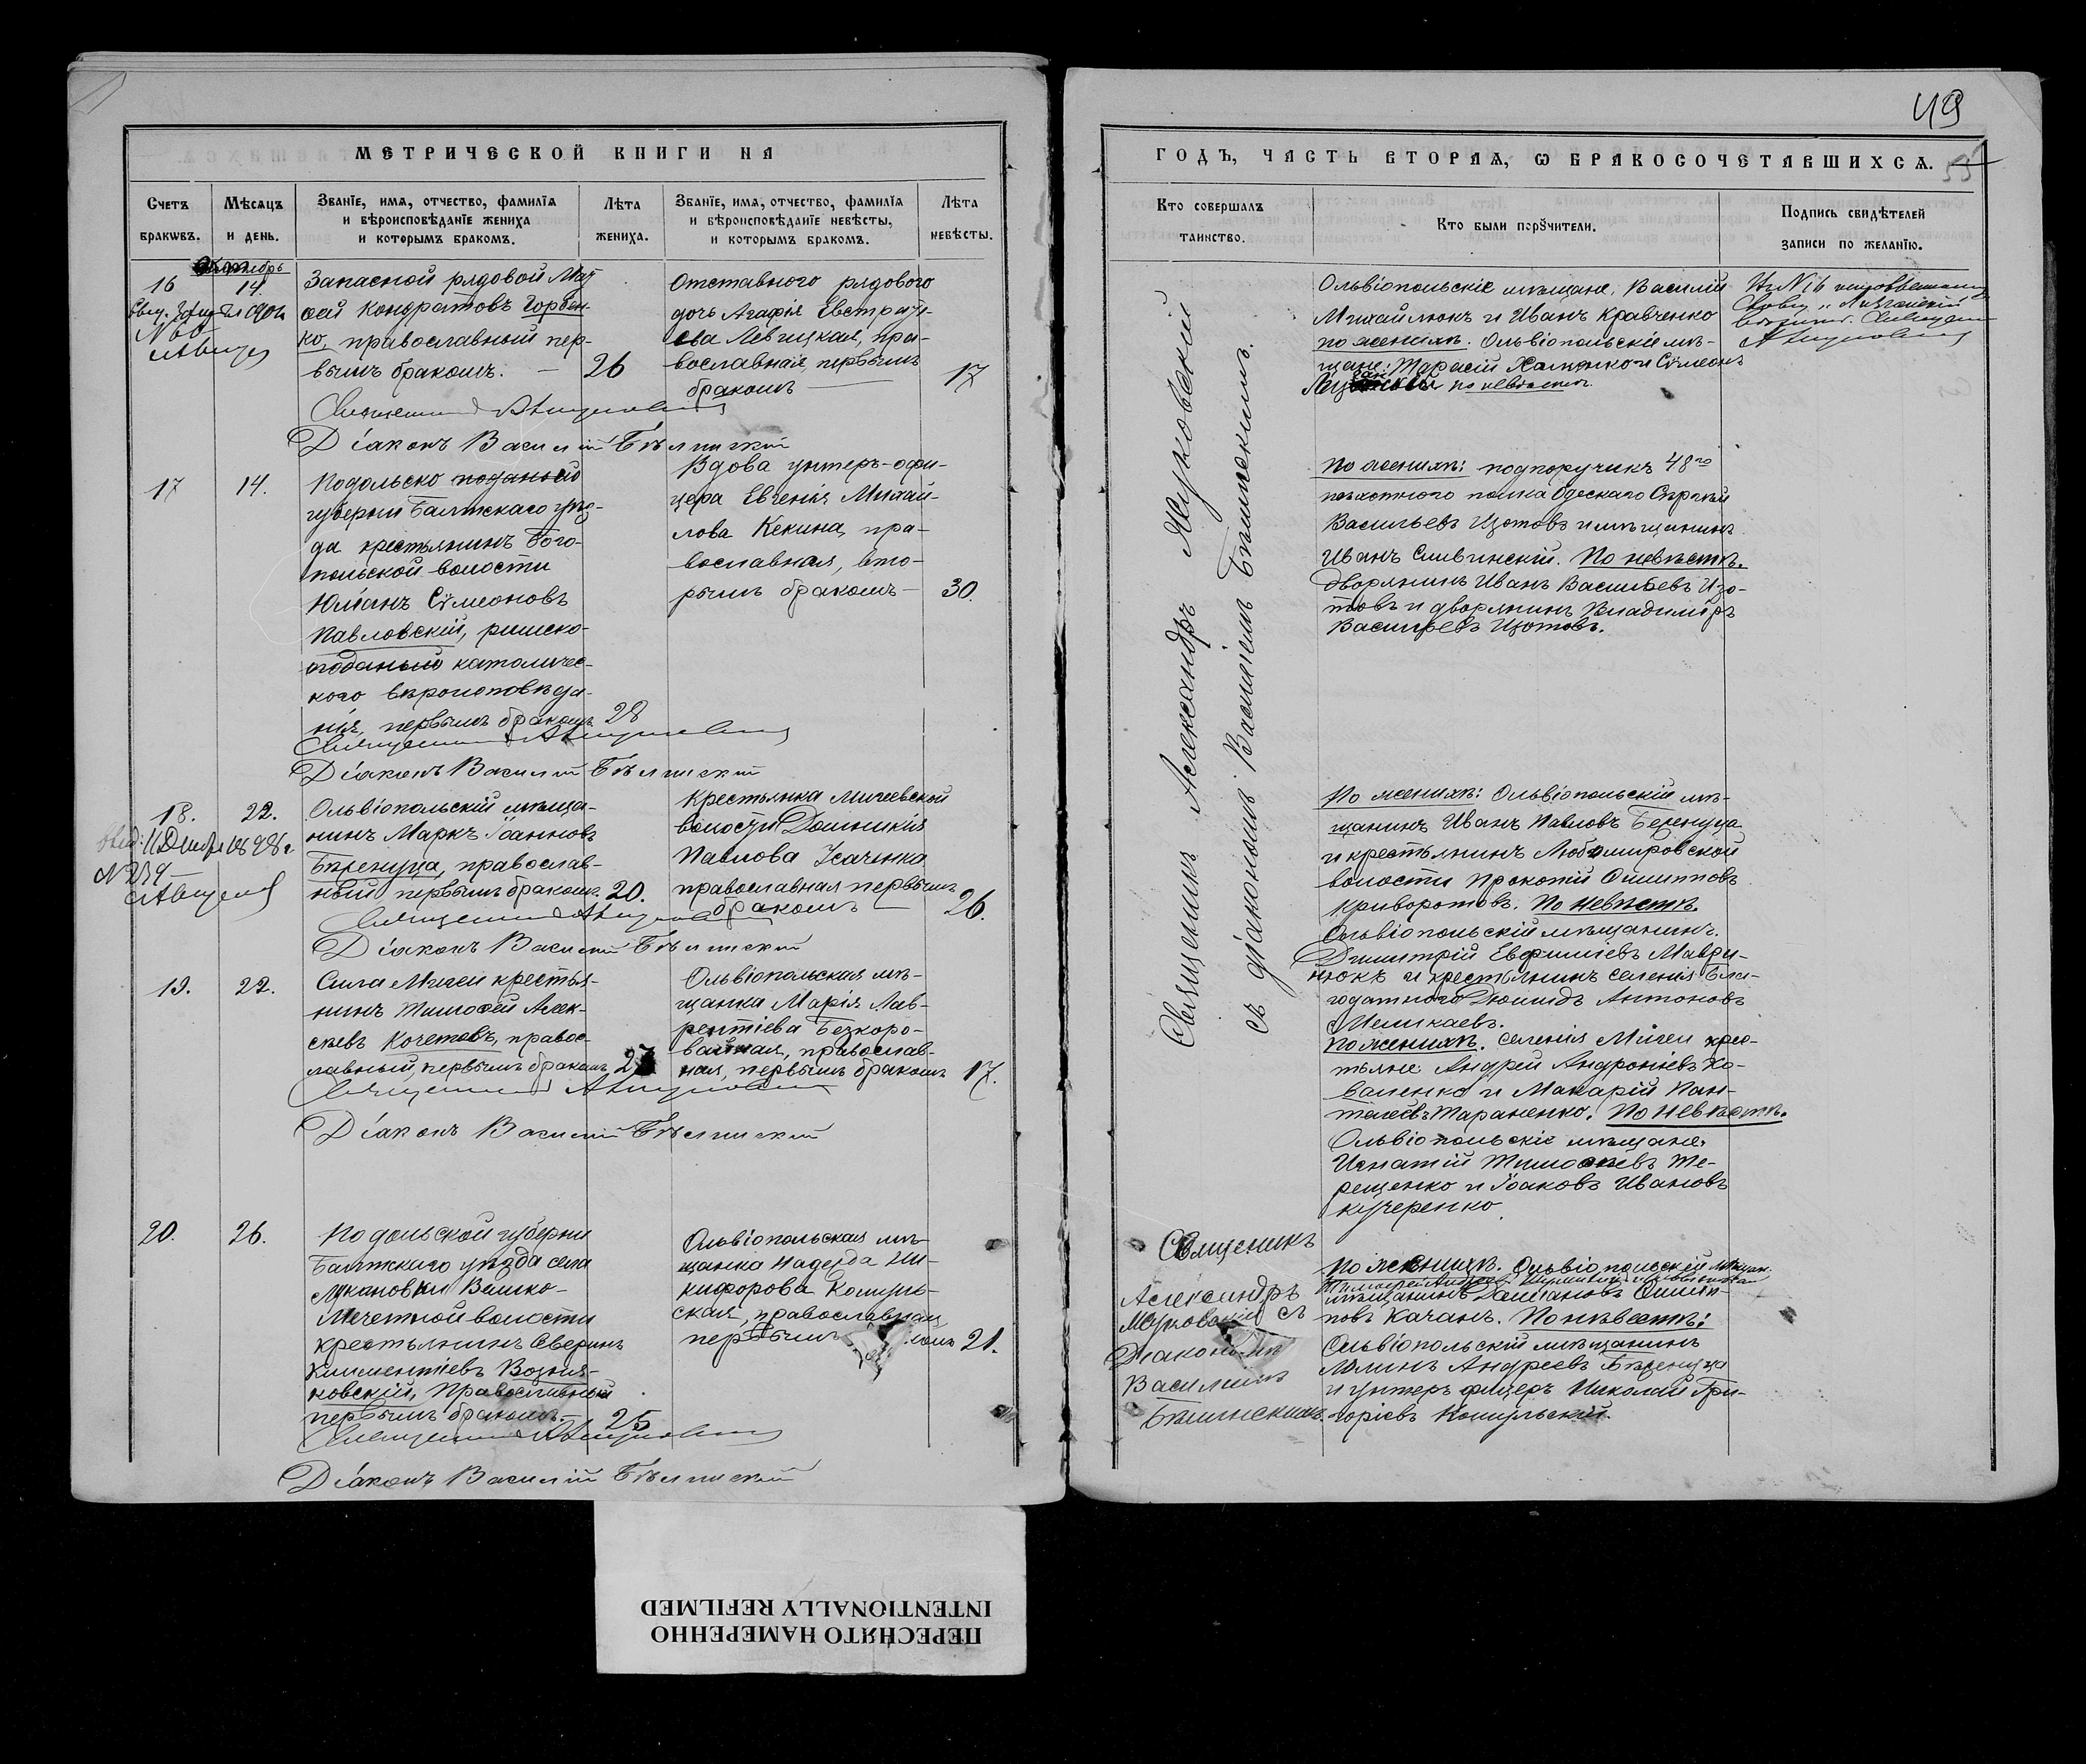 МЕТРИЧЕСКОЙ КНИГИ НА
Счетъ браковъ.
Мѣсяцъ и день.
Званїе, имя, отчество, фамилїя
и вѣроисповѣданїе жениха
и которымъ бракомъ.
Лѣта
жениха.
Званїе, имя, отчество, фамилїя
и вѣроисповѣданїе невѣсты,
и которымъ бракомъ.
Лѣта
невѣсты.
16
14.
Запасной рядовой Мат-
ѳей Кондратовъ Горбен-
ко, православный пер-
вымъ бракомъ. — 26
Отставного рядового
дочь Агафія Евстрати-
ева Левицкая, пра-
вославная, первымъ
бракомъ — 17
Діаконъ Василій Бѣлинскій
17
14.
Подольско
губерніи Балтскаго уѣз-
да крестьянинъ Бого-
польской волости
Юліанъ Сѵмеоновъ
Павловскій, римско-
католичес-
кого вѣроисповѣда-
нія, первымъ бракомъ 28
Вдова унтеръ-офи-
цера Евгенія Михай-
лова Кекина, пра-
вославная, вто-
рымъ бракомъ — 30.
Діаконъ Василій Бѣлинскій
18.
22.
Ольвіопольскій мѣща-
нинъ Маркъ Іоанновъ
Березуца, православ-
ный первымъ бракомъ 20.
Крестьянка Мигеевской
волости Домникія
Павлова Усаченка
православная первымъ
бракомъ — 26.
Діаконъ Василій Бѣлинскій
19.
22.
Села Мигеи крестья-
нинъ Тимоѳей Алек-
сѣевъ Кочетовъ, правос-
лавный, первымъ бракомъ 27
Ольвіопольская мѣ-
щанка Марія Лав-
рентіева Безкоро-
вайная, православ-
ная, первымъ бракомъ 17.
Діаконъ Василій Бѣлинскій
20.
26.
Подольской губерніи
Балтскаго уѣзда села
Лукановки Велико-
Мечетной волости
крестьянинъ Северинъ
Климентіевъ Возня-
новскій, православный
первымъ бракомъ — 25
Ольвіопольская мѣ-
щанка Надежда Ни-
кифорова Копуль-
ская, православная
первымъ 21.
Діаконъ Василій Бѣлинскій
49
55
ГОДЪ, ЧАСТЬ ВТОРАЯ, Ѡ БРАКОСОЧЕТАВШИХСЯ.
Кто совершалъ
таинство.
Кто были порꙋчители.
Подпись свидѣтелей
записи по желанїю.
Священникъ Александръ Мурковскій
съ діакономъ Василіемъ Бѣлинскимъ.
Ольвіопольскіе мѣщане, Василій
Михайлюкъ и Иванъ Кравченко
по женихѣ. Ольвіопольскіе мѣ-
щане: Тарасій Халенко и Сѵмеонъ
по невѣстѣ.
По женихѣ: подпоручикъ 48го
пѣхотного полка Одескаго Сергѣй
Васильевъ Изотовъ и мѣщанинъ
Иванъ Сливинскій. По невѣстѣ.
дворянинъ Иванъ Васильевъ Изо-
товъ и дворянинъ Владиміръ
Васильевъ Изотовъ.
По женихѣ: Ольвіопольскій мѣ-
щанинъ Иванъ Павловъ Березуца
и крестьянинъ Любомировской
волости Прокопій Филипповъ
Криворотовъ. По невѣстѣ.
Ольвіопольскій мѣщанинъ.
Димитрій Евфиміевъ Маври-
нюкъ и крестьянинъ селенія Бла-
годатного Діомидъ Антоновъ
Меликаевъ.
По женихѣ. селенія Мигеи крес-
тьяне Андрей Андроніевъ Ко-
валенко и Макарій Пан-
телеевъ Тараненко. По невѣстѣ.
Ольвіопольскіе мѣщане.
Игнатій Тимоѳеевъ Те-
рещенко и Іоаковъ Ивановъ
Кучеренко.
Священикъ
Александръ
Мурковскій съ
Діакономъ
Василіемъ
Бѣлинскимъ.
По женихѣ. Ольвіопольскій мѣщан.
мѣщанинъ Филип-
повъ Качанъ. По невѣстѣ:
Ольвіопольскій мѣщанинъ
Андреевъ Березуца
и унтеръ фицеръ Николай Гри-
горіевъ Копульскій.
ПЕРЕСНЯТО НАМЕРЕННО
INTENTIONALLY REFILMED